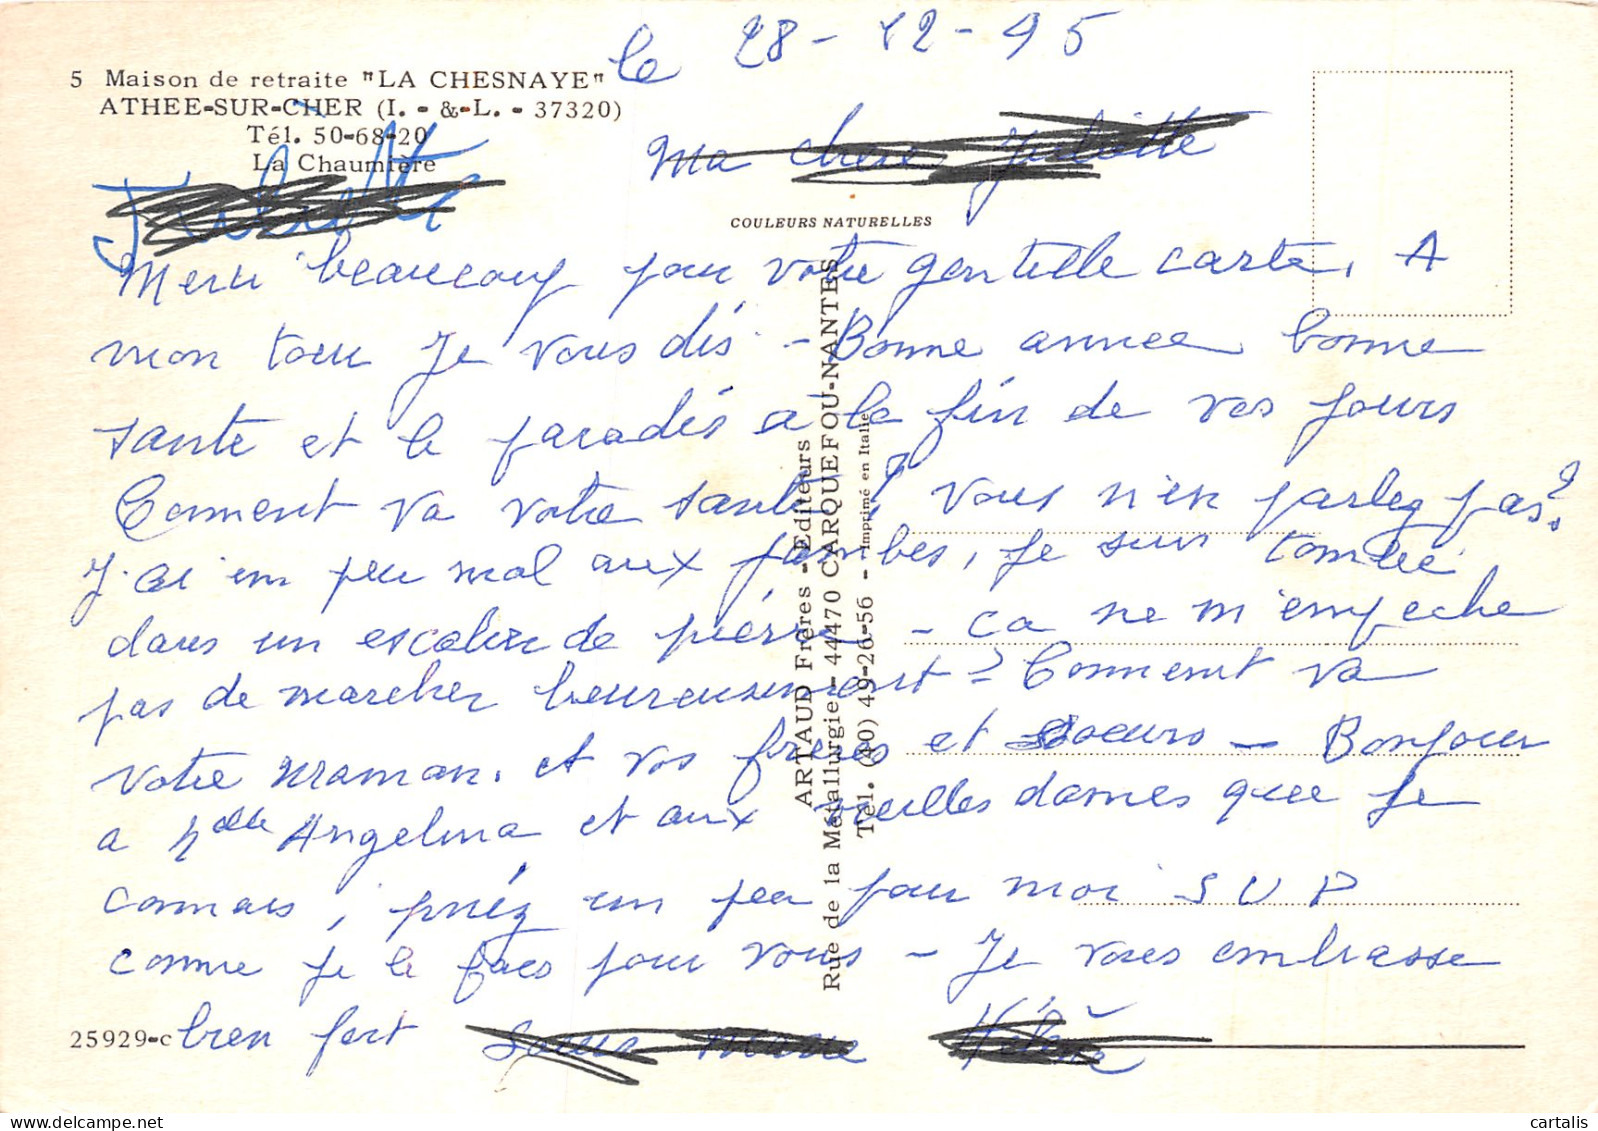 le 28-12-95
5 Maison de retraite "LA CHESNAYE"
ATHEE-SUR-CHER (I. - &-L. - 37320)
Tél. 50-68-20
La Chaumière
Juliette
Ma chere Juliette
COULEURS NATURELLES
Merci beaucoup pour votre gentille carte. A
mon tour Je vous dis - Bonne annee, bonne
sante et le paradis a la fin de vos jours
Comment va votre sante? vous n'en parlez pas?
J'ai un peu mal aux jambes, je suis tombée
dans un escalier de pierre - ca ne m'empeche
pas de marcher heureusement - Comment va
votre maman. et vos freres et soeurs - Bonjour
a Melle Angelina et aux vieilles dames que je
connais, priéz un peu pour moi S V P
comme je le fais pour vous - Je vous embrasse
bien fort Soeur Marie Hélène
ARTAUD Frères - Editeurs
Rue de la Métallurgie - 44470 CARQUEFOU-NANTES
Tél. (40) 49-26-56 - Imprimé en Italie
25929-c
cartalis